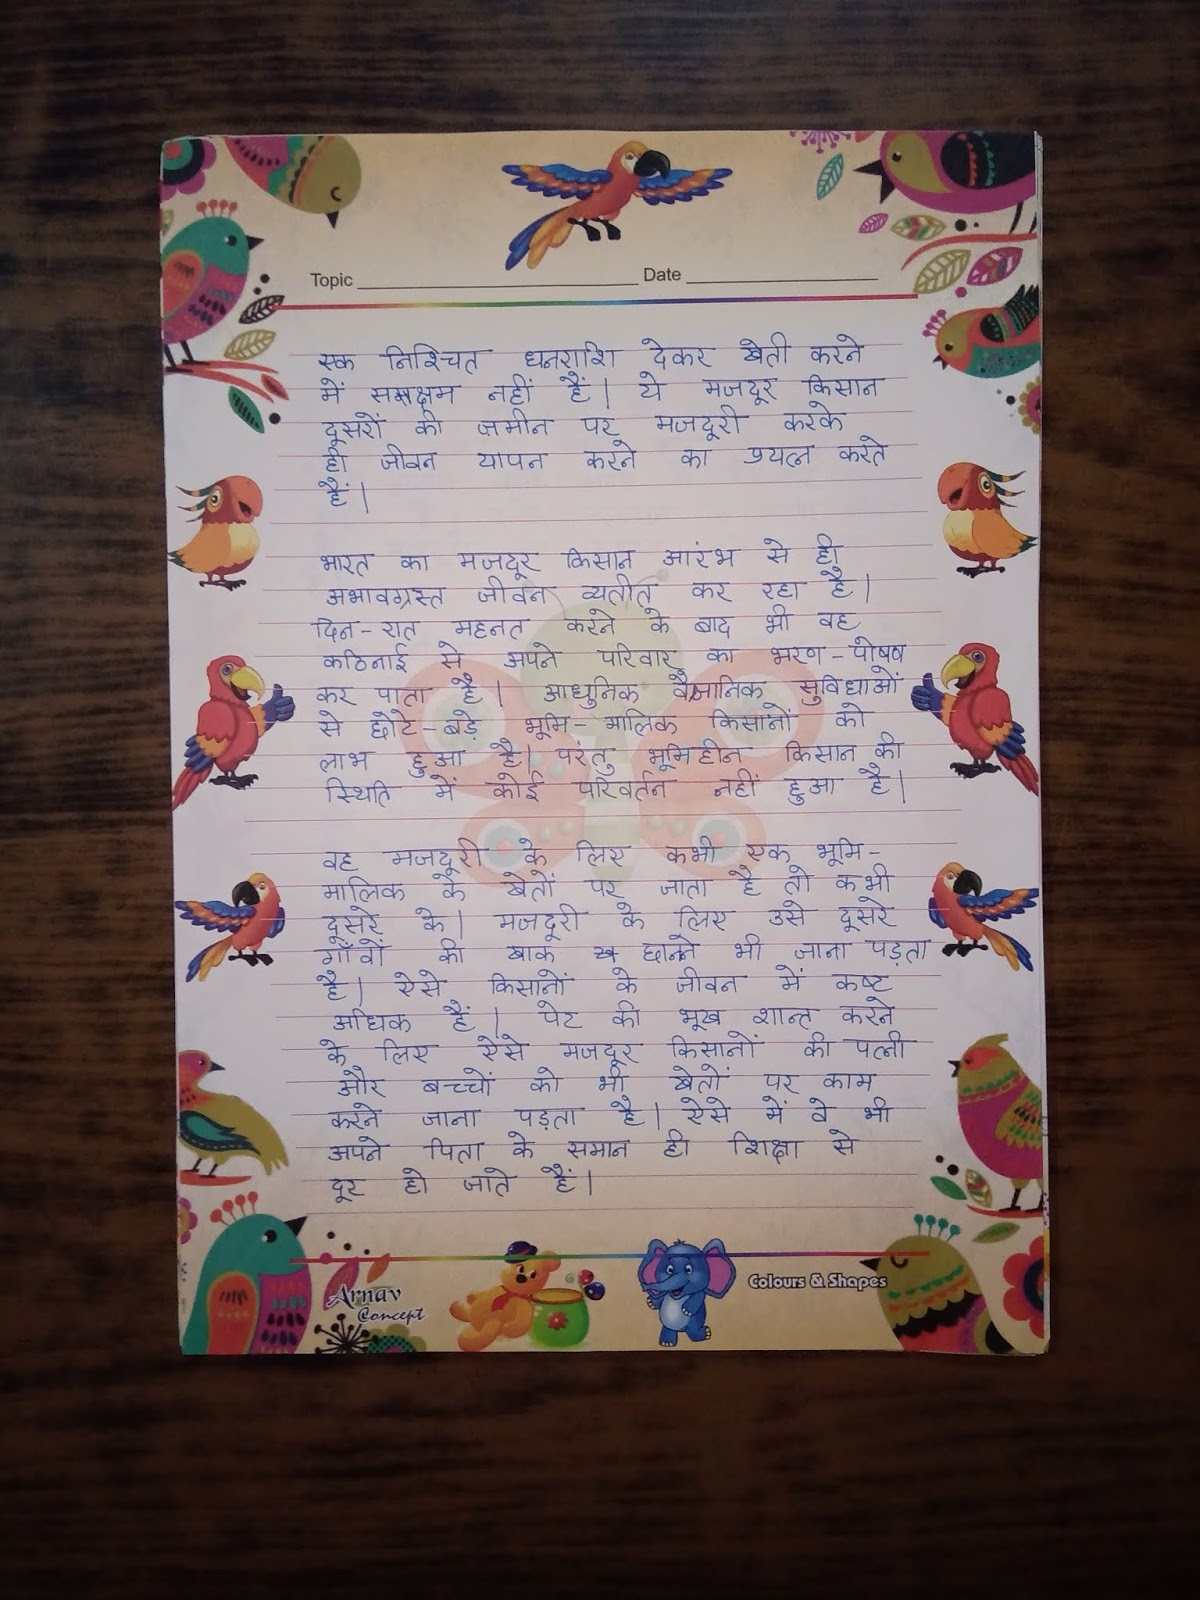 Topic Date
एक निश्चित धनराशि देकर खेती करने
में सक्षम नहीं हैं। ये मजदूर किसान
दूसरों की जमीन पर मजदूरी करके
ही जीवन यापन करने का प्रयत्न करते
हैं।
भारत का मजदूर किसान आरंभ से ही
अभावग्रस्त जीवन व्यतीत कर रहा है।
दिन-रात महनत करने के बाद भी वह
कठिनाई से अपने परिवार का भरण-पोषण
कर पाता है। आधुनिक वैज्ञानिक सुविधाओं
से छोटे-बड़े भूमि-मालिक किसानों को
लाभ हुआ है। परंतु भूमिहीन किसान की
स्थिति में कोई परिवर्तन नहीं हुआ है।
वह मजदूरी के लिए कभी एक भूमि-
मालिक के खेतों पर जाता है तो कभी
दूसरे के। मजदूरी के लिए उसे दूसरे
गाँवों की खाक छानने भी जाना पड़ता
है। ऐसे किसानों के जीवन में कष्ट
अधिक हैं। पेट की भूख शान्त करने
के लिए ऐसे मजदूर किसानों की पत्नी
और बच्चों को भी खेतों पर काम
करने जाना पड़ता है। ऐसे में वे भी
अपने पिता के समान ही शिक्षा से
दूर हो जाते हैं।
Arnav
Concept
Colours & Shapes